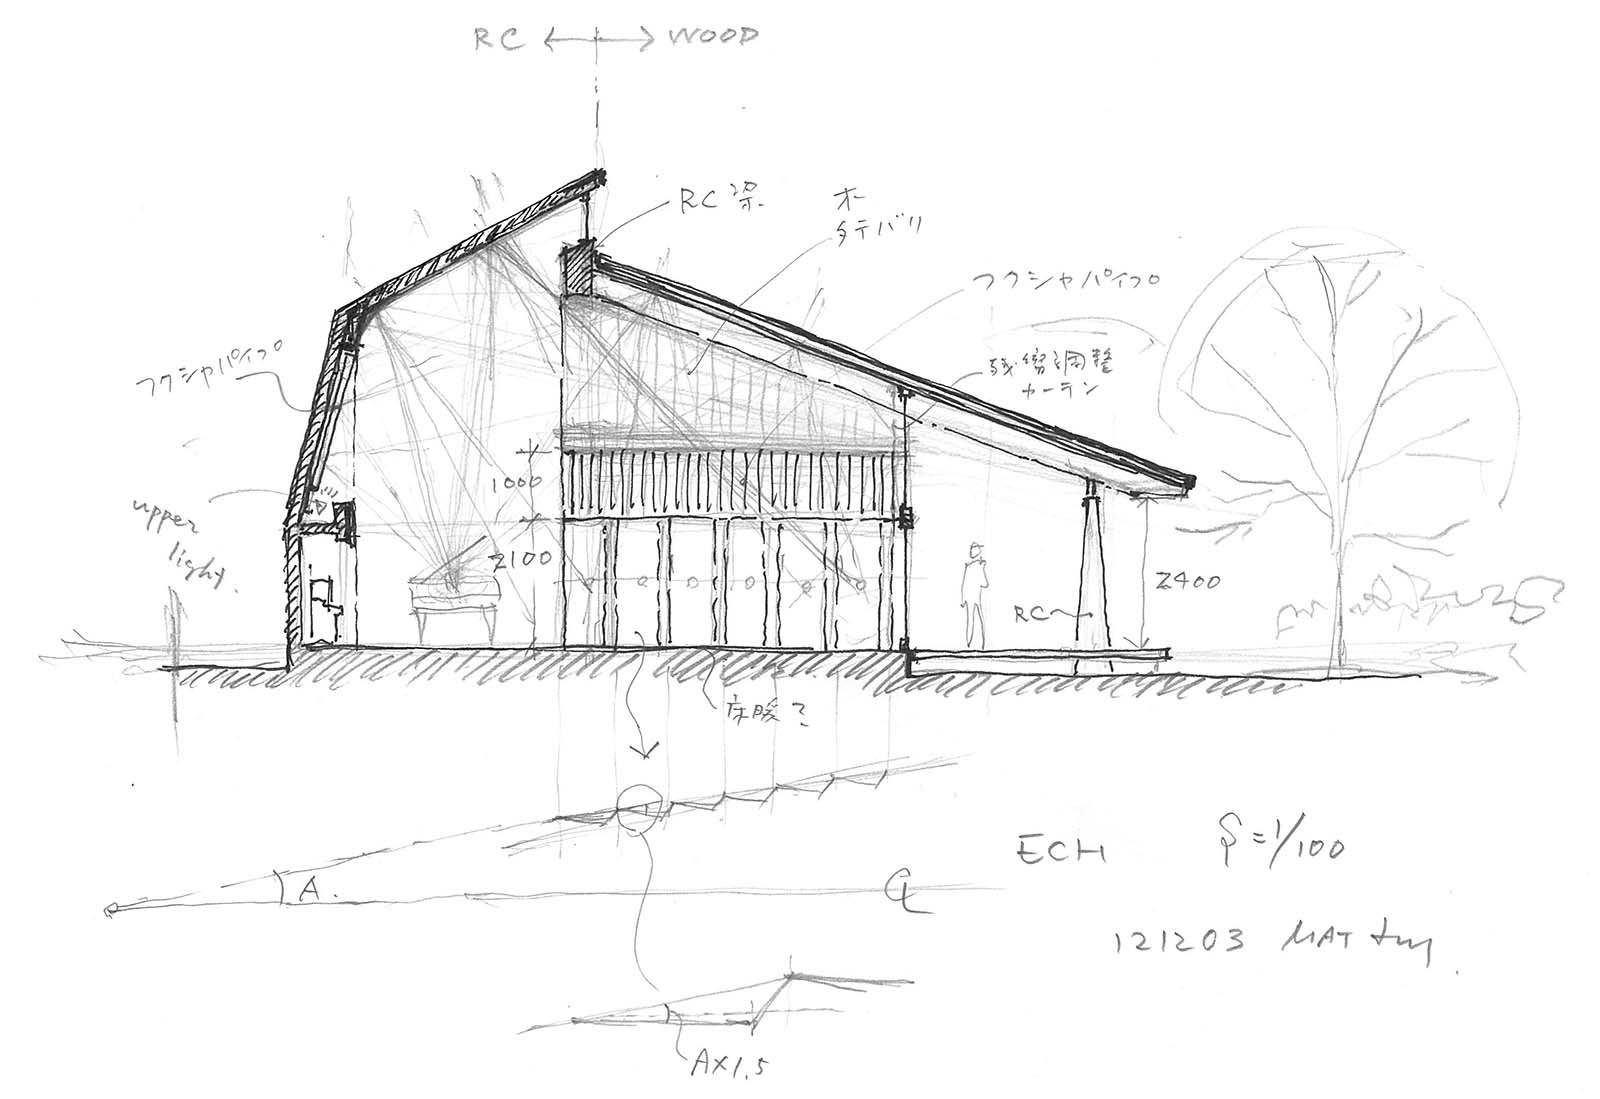 RC ← → WOOD
RC梁
木
タテバリ
フクシャパイプ
残響調整
カーテン
フクシャパイプ
upper
light.
1000
2100
2400
RC
床暖?
A.
CL
ECH S=1/100
121203 MAT
A×1.5